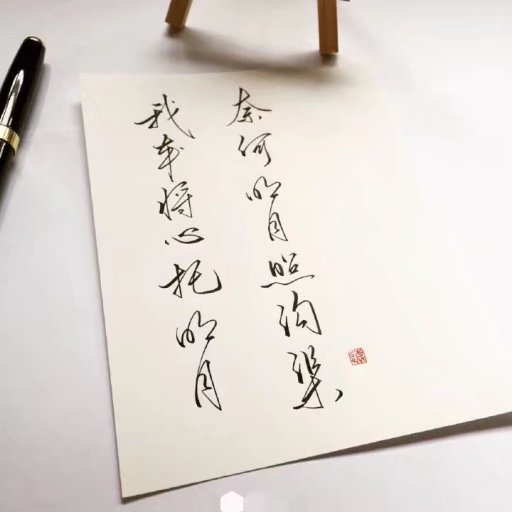 我本将心托明月
奈何明月照沟渠